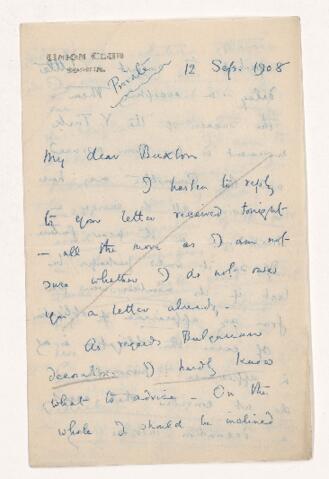 UNION CLUB
SOPHIA.
Private
12 Sep. 1908
My dear Buxton
I hasten to reply
to your letter received tonight
– all the more as I am not
sure whether I do not owe
you a letter already –
As regards Bulgarian
decorations I hardly know
what to advise – On the
whole I should be inclined